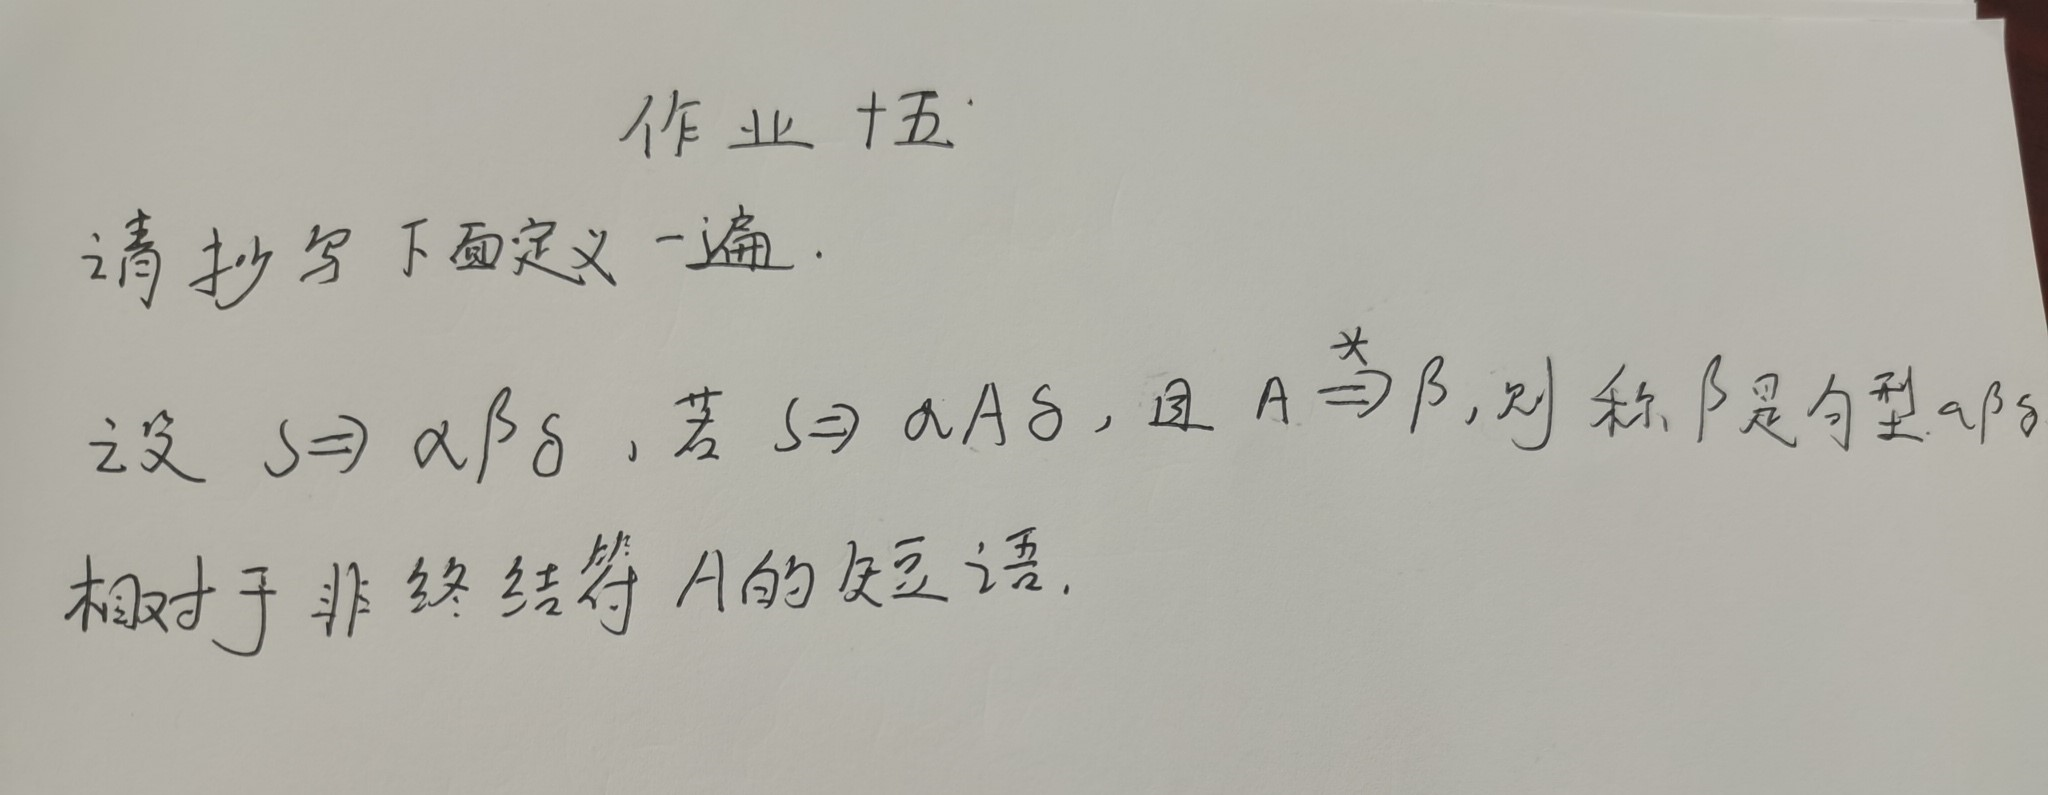 作业十五.
请抄写下面定义一遍.
设 S⇒αβδ,若 S⇒αAδ,且 A ⇒* β,则称β是句型αβδ
相对于非终结符A的短语.